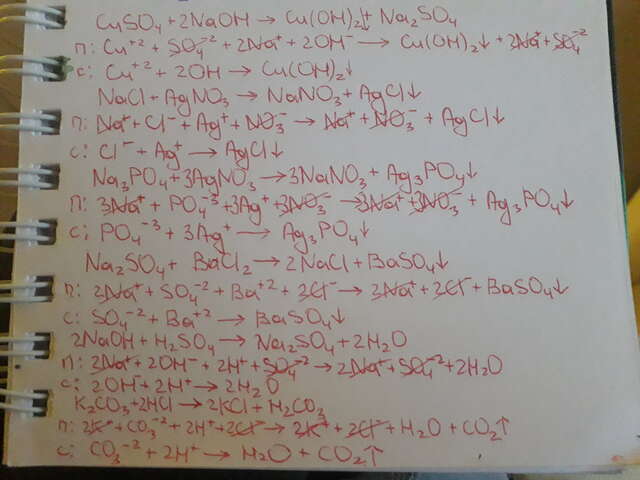 CuSO₄ + 2NaOH → Cu(OH)₂↓ + Na₂SO₄
П: Cu⁺² + SO₄⁻² + 2Na⁺ + 2OH⁻ → Cu(OH)₂↓ + 2Na⁺ + SO₄⁻²
С: Cu⁺² + 2OH → Cu(OH)₂↓
NaCl + AgNO₃ → NaNO₃ + AgCl↓
П: Na⁺ + Cl⁻ + Ag⁺ + NO₃⁻ → Na⁺ + NO₃⁻ + AgCl↓
С: Cl⁻ + Ag⁺ → AgCl↓
Na₃PO₄ + 3AgNO₃ → 3NaNO₃ + Ag₃PO₄↓
П: 3Na⁺ + PO₄⁻³ + 3Ag⁺ + 3NO₃⁻ → 3Na⁺ + 3NO₃⁻ + Ag₃PO₄↓
С: PO₄⁻³ + 3Ag⁺ → Ag₃PO₄↓
Na₂SO₄ + BaCl₂ → 2NaCl + BaSO₄↓
П: 2Na⁺ + SO₄⁻² + Ba⁺² + 2Cl⁻ → 2Na⁺ + 2Cl⁻ + BaSO₄↓
С: SO₄⁻² + Ba⁺² → BaSO₄↓
2NaOH + H₂SO₄ → Na₂SO₄ + 2H₂O
П: 2Na⁺ + 2OH⁻ + 2H⁺ + SO₄⁻² → 2Na⁺ + SO₄⁻² + 2H₂O
С: 2OH⁻ + 2H⁺ → 2H₂O
K₂CO₃ + 2HCl → 2KCl + H₂CO₃
П: 2K⁺ + CO₃⁻² + 2H⁺ + 2Cl⁻ → 2K⁺ + 2Cl⁻ + H₂O + CO₂↑
С: CO₃⁻² + 2H⁺ → H₂O + CO₂↑